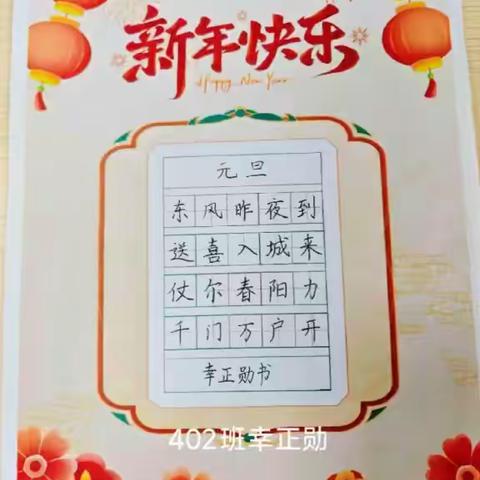 新年快乐
Happy New Year
元旦
东风昨夜到
送喜入城来
仗尔春阳力
千门万户开
幸正勋书
402班幸正勋